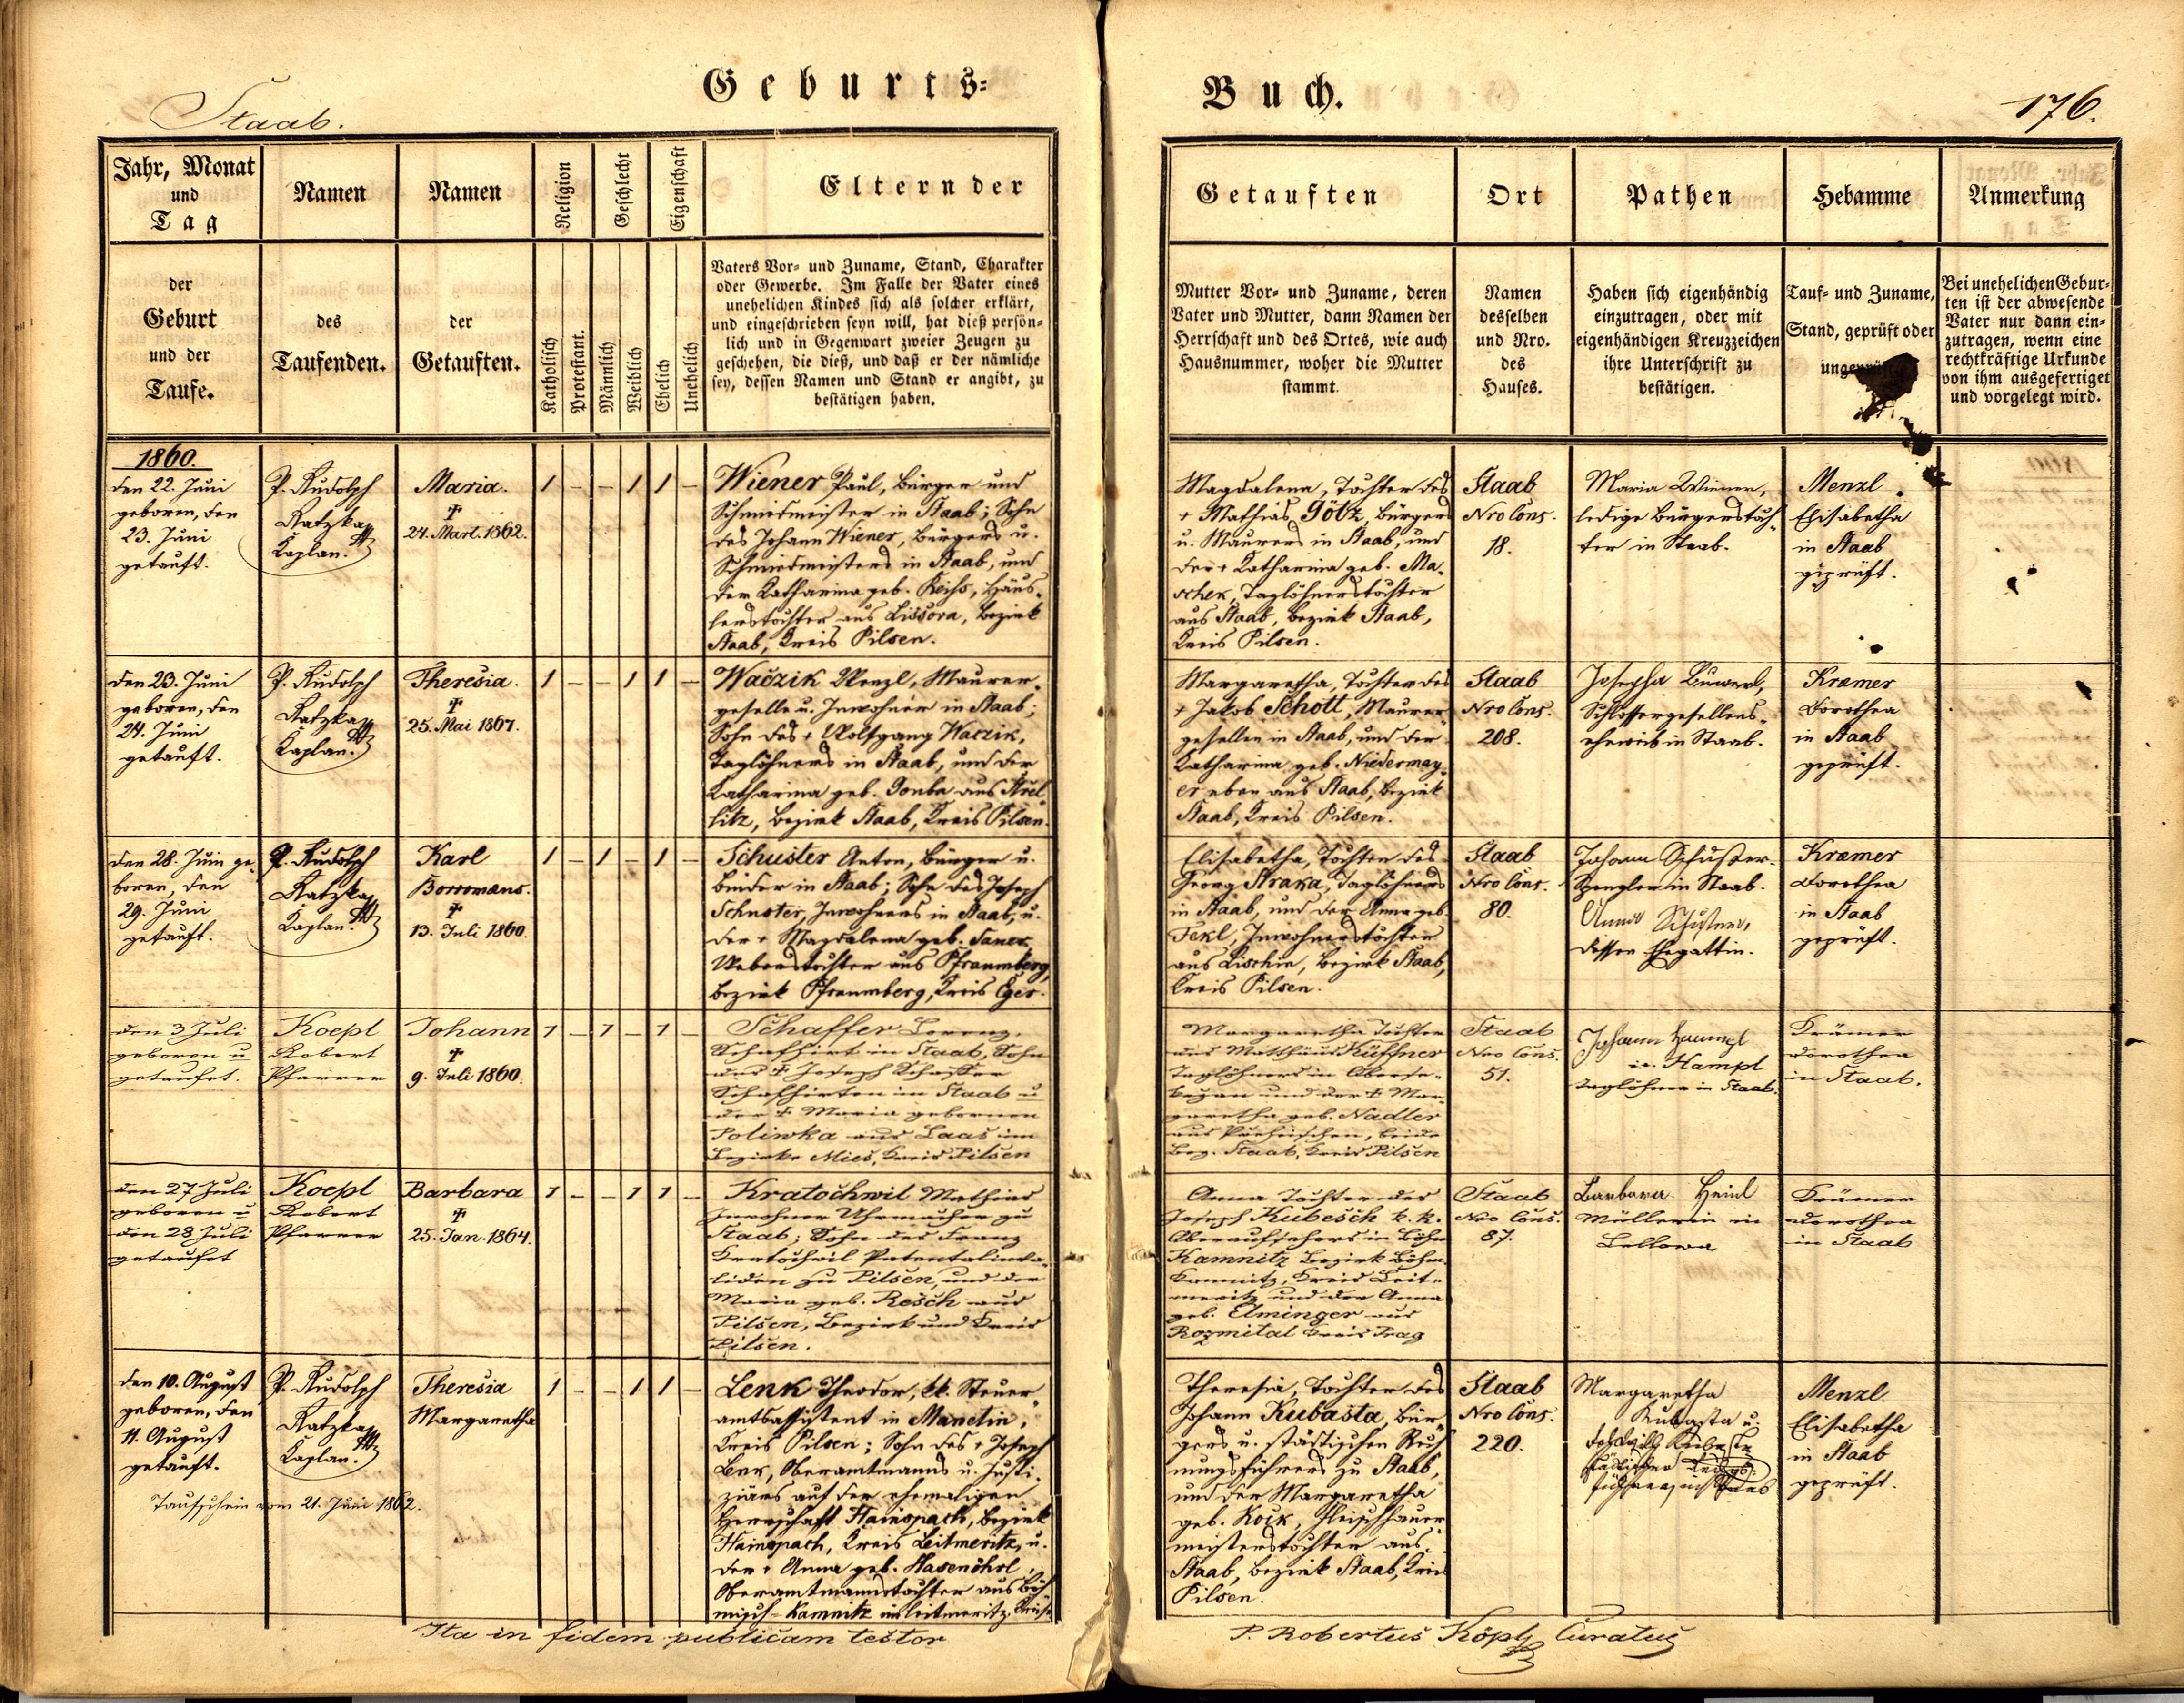 Geburts-
Buch.
Staab.
176.
Jahr, Monat
und
Tag
der
Geburt
und der
Taufe.
Namen
des
Taufenden.
Namen
der
Getauften.
Religion
Katholisch
Protestant.
Geschlecht
Männlich
Weiblich
Eigenschaft
Ehelich
Unehelich
Eltern der
Vaters Vor- und Zuname, Stand, Charakter
oder Gewerbe. Im Falle der Vater eines
unehelichen Kindes sich als solcher erklärt,
und eingeschrieben seyn will, hat dieß persön-
lich und in Gegenwart zweier Zeugen zu
geschehen, die dieß, und daß er der nämliche
sey, dessen Namen und Stand er angibt, zu
bestätigen haben.
Getauften
Mutter Vor- und Zuname, deren
Vater und Mutter, dann Namen der
Herrschaft und des Ortes, wie auch
Hausnummer, woher die Mutter
stammt.
Ort
Namen
desselben
und Nro.
des
Hauses.
Pathen
Haben sich eigenhändig
einzutragen, oder mit
eigenhändigen Kreuzzeichen
ihre Unterschrift zu
bestätigen.
Hebamme
Tauf- und Zuname,
Stand, geprüft oder
Anmerkung
Bei unehelichen Gebur-
ten ist der abwesende
Vater nur dann ein-
zutragen, wenn eine
rechtkräftige Urkunde
von ihm ausgefertiget
und vorgelegt wird.
1860.
den 22. Juni
geboren, den
23. Juni
getauft.
P. Rudolph
Ratzka
Kaplan.
Maria.
†
24. Mart. 1862.
1 – – 1 1 –
Wiener Paul, Bürger und
Schmidmeister in Staab; Sohn
des Johann Wiener, Bürgers u.
Schmiedmeisters in Staab, und
der Katharina geb. Reihs, Häus-
lerstochter aus Lissova, Bezirk
Staab, Kreis Pilsen.
Magdalena, Tochter des
† Mathias Götz, Bürgers
u. Maurers in Staab, und
der † Katharina geb. Ma-
schek, Taglöhnerstochter
aus Staab, Bezirk Staab,
Kreis Pilsen.
Staab
Nro Cons.
18.
Maria Wiener,
ledige Bürgerstoch-
ter in Staab.
Menzl
Elisabetha
in Staab
geprüft.
den 23. Juni
geboren, den
24. Juni
getauft.
P. Rudolph
Ratzka
Kaplan.
Theresia.
†
25. Mai 1867.
1 – – 1 1 –
Waczik Wenzl, Maurer-
geselle u. Inwohner in Staab;
Sohn des † Wolfgang Waczik,
Taglöhners in Staab, und der
Katharina geb. Gonba aus Strel-
litz, Bezirk Staab, Kreis Pilsen.
Margaretha, Tochter des
† Jakob Schott, Maurer-
gesellen in Staab, und der
Katharina geb. Niedermay-
er eben aus Staab, Bezirk
Staab, Kreis Pilsen.
Staab
Nro Cons.
208.
Josepha
Schlossergesellens-
eheweib in Staab.
Kræmer
Dorothea
in Staab
geprüft.
den 28. Juni ge-
boren, den
29. Juni
getauft.
P. Rudolph
Ratzka
Kaplan.
Karl
Borromæus.
†
13. Juli 1860.
1 – 1 – 1 –
Schuster Anton, Bürger u.
Binder in Staab; Sohn des Joseph
Schuster, Inwohners in Staab, u.
der † Magdalena geb. Saner,
Weberstochter aus Pfraumberg,
Bezirk Pfraumberg, Kreis Eger.
Elisabetha, Tochter des
Georg Straka, Taglöhners
in Staab, und der Anna geb.
Fekl, Inwohnerstochter
aus Lischin, Bezirk Staab,
Kreis Pilsen.
Staab
Nro Cons.
80.
Johann Schuster
Spengler in Staab.
Anna Schuster,
dessen Ehegattin.
Kræmer
Dorothea
in Staab
geprüft.
den 3 Juli
geboren u
getaufet.
Koepl
Robert
Pfarrer
Johann
†
9. Juli 1860.
1 – 1 – 1 –
Schaffer Lorenz,
Schafhirt in Staab, Sohn
des † Joseph Schaffer
Schafhirten in Staab u
der † Maria gebornen
Poliwka aus Laas im
Bezirke Mies, Kreis Pilsen
Margaretha Tochter
des Matthäus Küffner
Taglöhners in Oberse-
kezan und der † Mar-
garetha geb. Nadler
aus Purheischen, beide
Bez. Staab, Kreis Pilsen
Staab
Nro Cons.
51.
Johann Hampl
Hampl
Taglöhner in Staab.
Krämer
Dorothea
in Staab.
den 27 Juli
geboren u
den 28 Juli
getaufet
Koepl
Robert
Pfarrer
Barbara
†
25. Jan. 1864.
1 – – 1 1 –
Kratochwil Mathias
Inwohner Uhrmacher zu
Staab; Sohn des Franz
Kratochwil Patentalinva-
liden zu Pilsen, und der
Maria geb. Resch aus
Pilsen, Bezirk und Kreis
Pilsen.
Anna Tochter des
Joseph Kubesch k. k.
Oberaufsehers in Böhm
Kamnitz Bezirk Böhm.
Kamnitz, Kreis Leit-
meritz und der Anna
geb. Elminger aus
Rozmital Kreis Prag
Staab
Nro Cons.
87.
Barbara Heinl
Müllerin in
Lellowa
Krämer
Dorothea
in Staab
den 10. August
geboren, den
11. August
getauft.
Taufschein vom 21. Juni 1862.
P. Rudolph
Ratzka
Kaplan.
Theresia
Margaretha
1 – – 1 1 –
Lenk Theodor, kk. Steuer-
amtsassistent in Manetin,
Kreis Pilsen; Sohn des † Joseph
Lenk, Oberamtmanns u. Justi-
ziärs auf der ehemaligen
Herrschaft Hainspach, Bezirk
Hainspach, Kreis Leitmeritz, u.
der † Anna geb. Hasenöhrl,
Oberamtmannstochter aus Böh-
misch-Kamnitz im Leitmeritz. Kreise
Theresia, Tochter des
Johann Kubasta, Bür-
gers u. städtischen Rech-
nungsführers zu Staab,
und der Margaretha
geb. Kock, Fleischhauer-
meisterstochter aus
Staab, Bezirk Staab, Kreis
Pilsen.
Staab
Nro Cons.
220.
Margaretha
Kubasta u.
Menzl
Elisabetha
in Staab
geprüft.
Ita in fidem publicam testor
P. Robertus Köpl Curatus